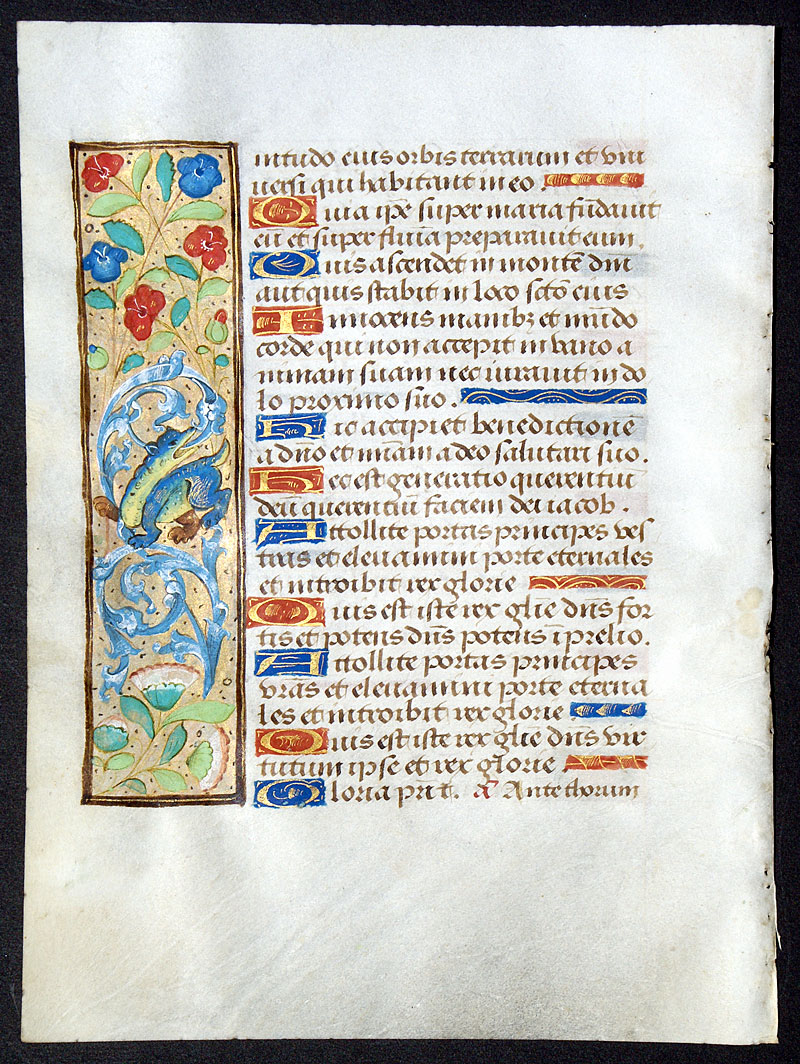 nitudo eius orbis terrarum et vni
uersi qui habitant in eo
Quia ipẽ super maria fundauit
eũ et super flumĩa preparauit eum.
Quis ascendet in montẽ dñi
aut quis stabit in loco sctõ eius
Innocens manibz et mũdo
corde qui non accepit in vano a
nimam suam nec iurauit in do
lo proximo suo.
Hic accipiet benedictionẽ
a dño et miãm a deo salutari suo.
Hec est generatio querentiũ
deũ querentiũ faciem dei iacob.
Attollite portas principes ves
tras et eleuamini porte eternales
et introibit rex glorie
Quis est iste rex glie dñs for
tis et potens dñs potens ĩ prelio.
Attollite portas principes
vrãs et eleuamini porte eterna
les et introibit rex glorie
Quis est iste rex glie dñs vir
tutum ipse et rex glorie
Gloria pri t. añ Ante thorum